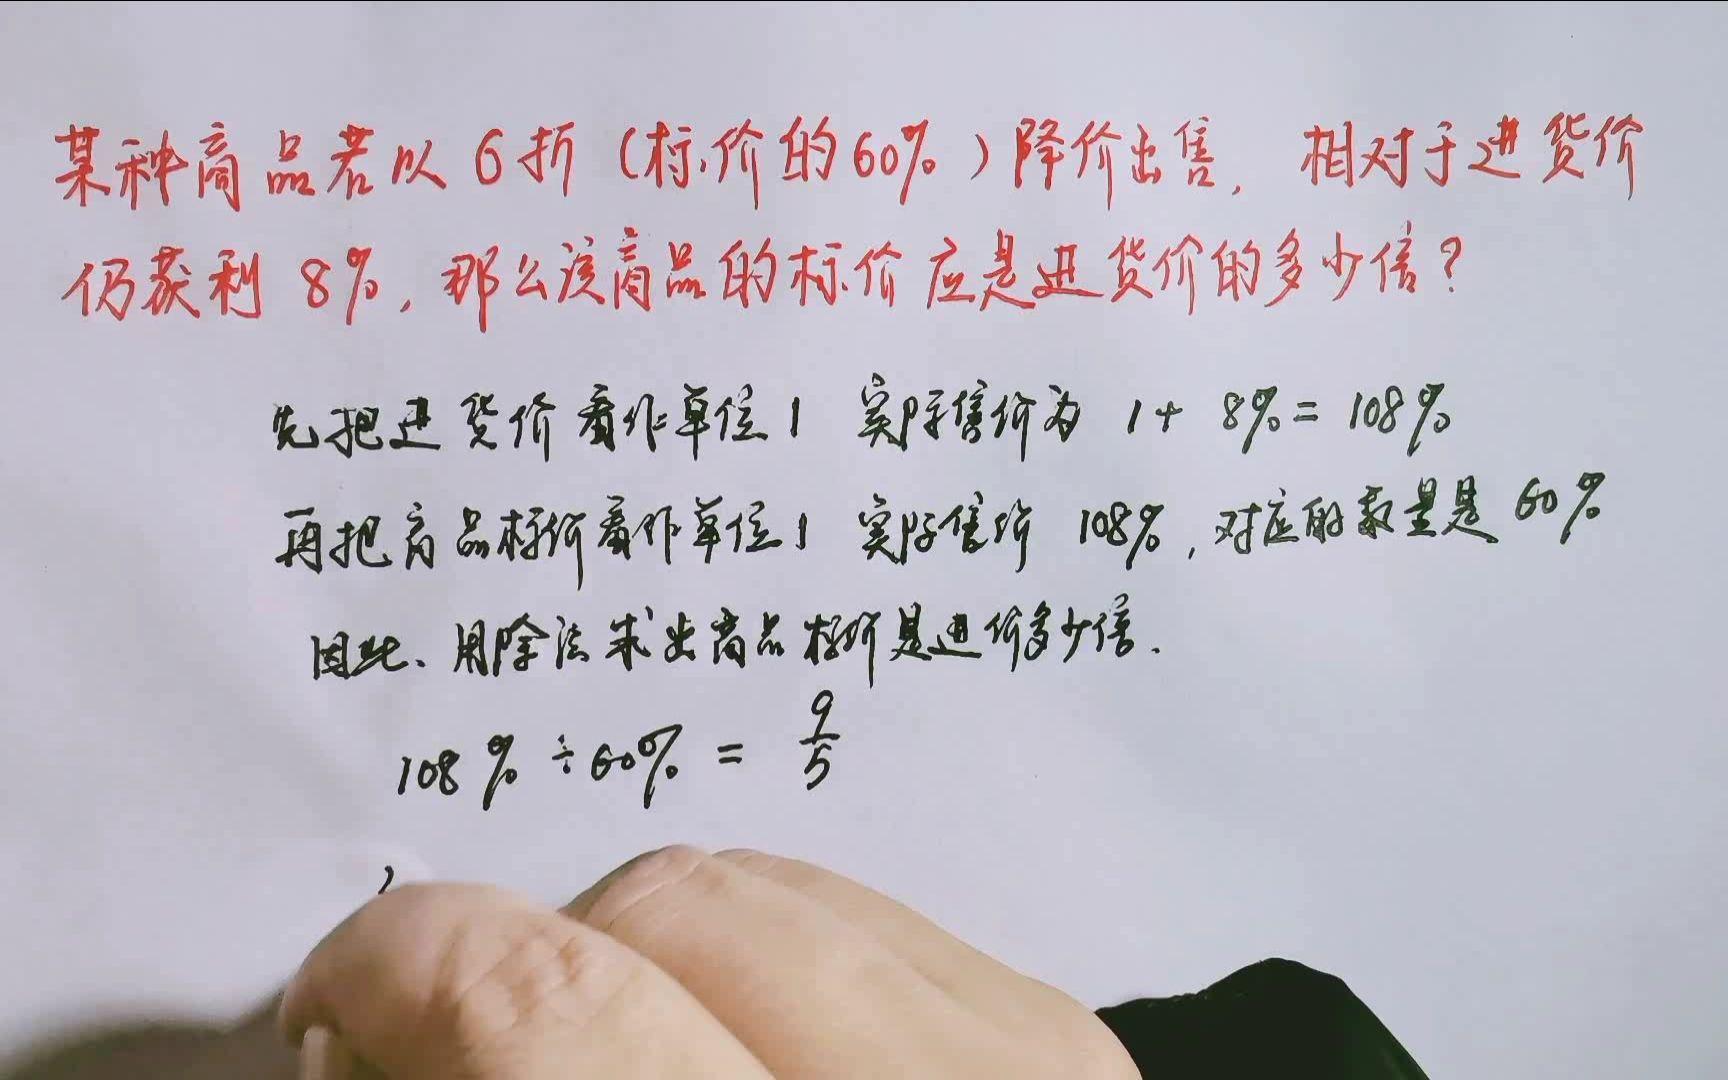 某种商品若以6折（标价的60%）降价出售，相对于进货价
仍获利8%，那么该商品的标价应是进货价的多少倍？
先把进货价看作单位1 实际售价为 1+8%=108%
再把商品标价看作单位1 实际售价 108%，对应的数量是60%
因此、用除法求出商品标价是进价多少倍.
108%÷60%=9/5